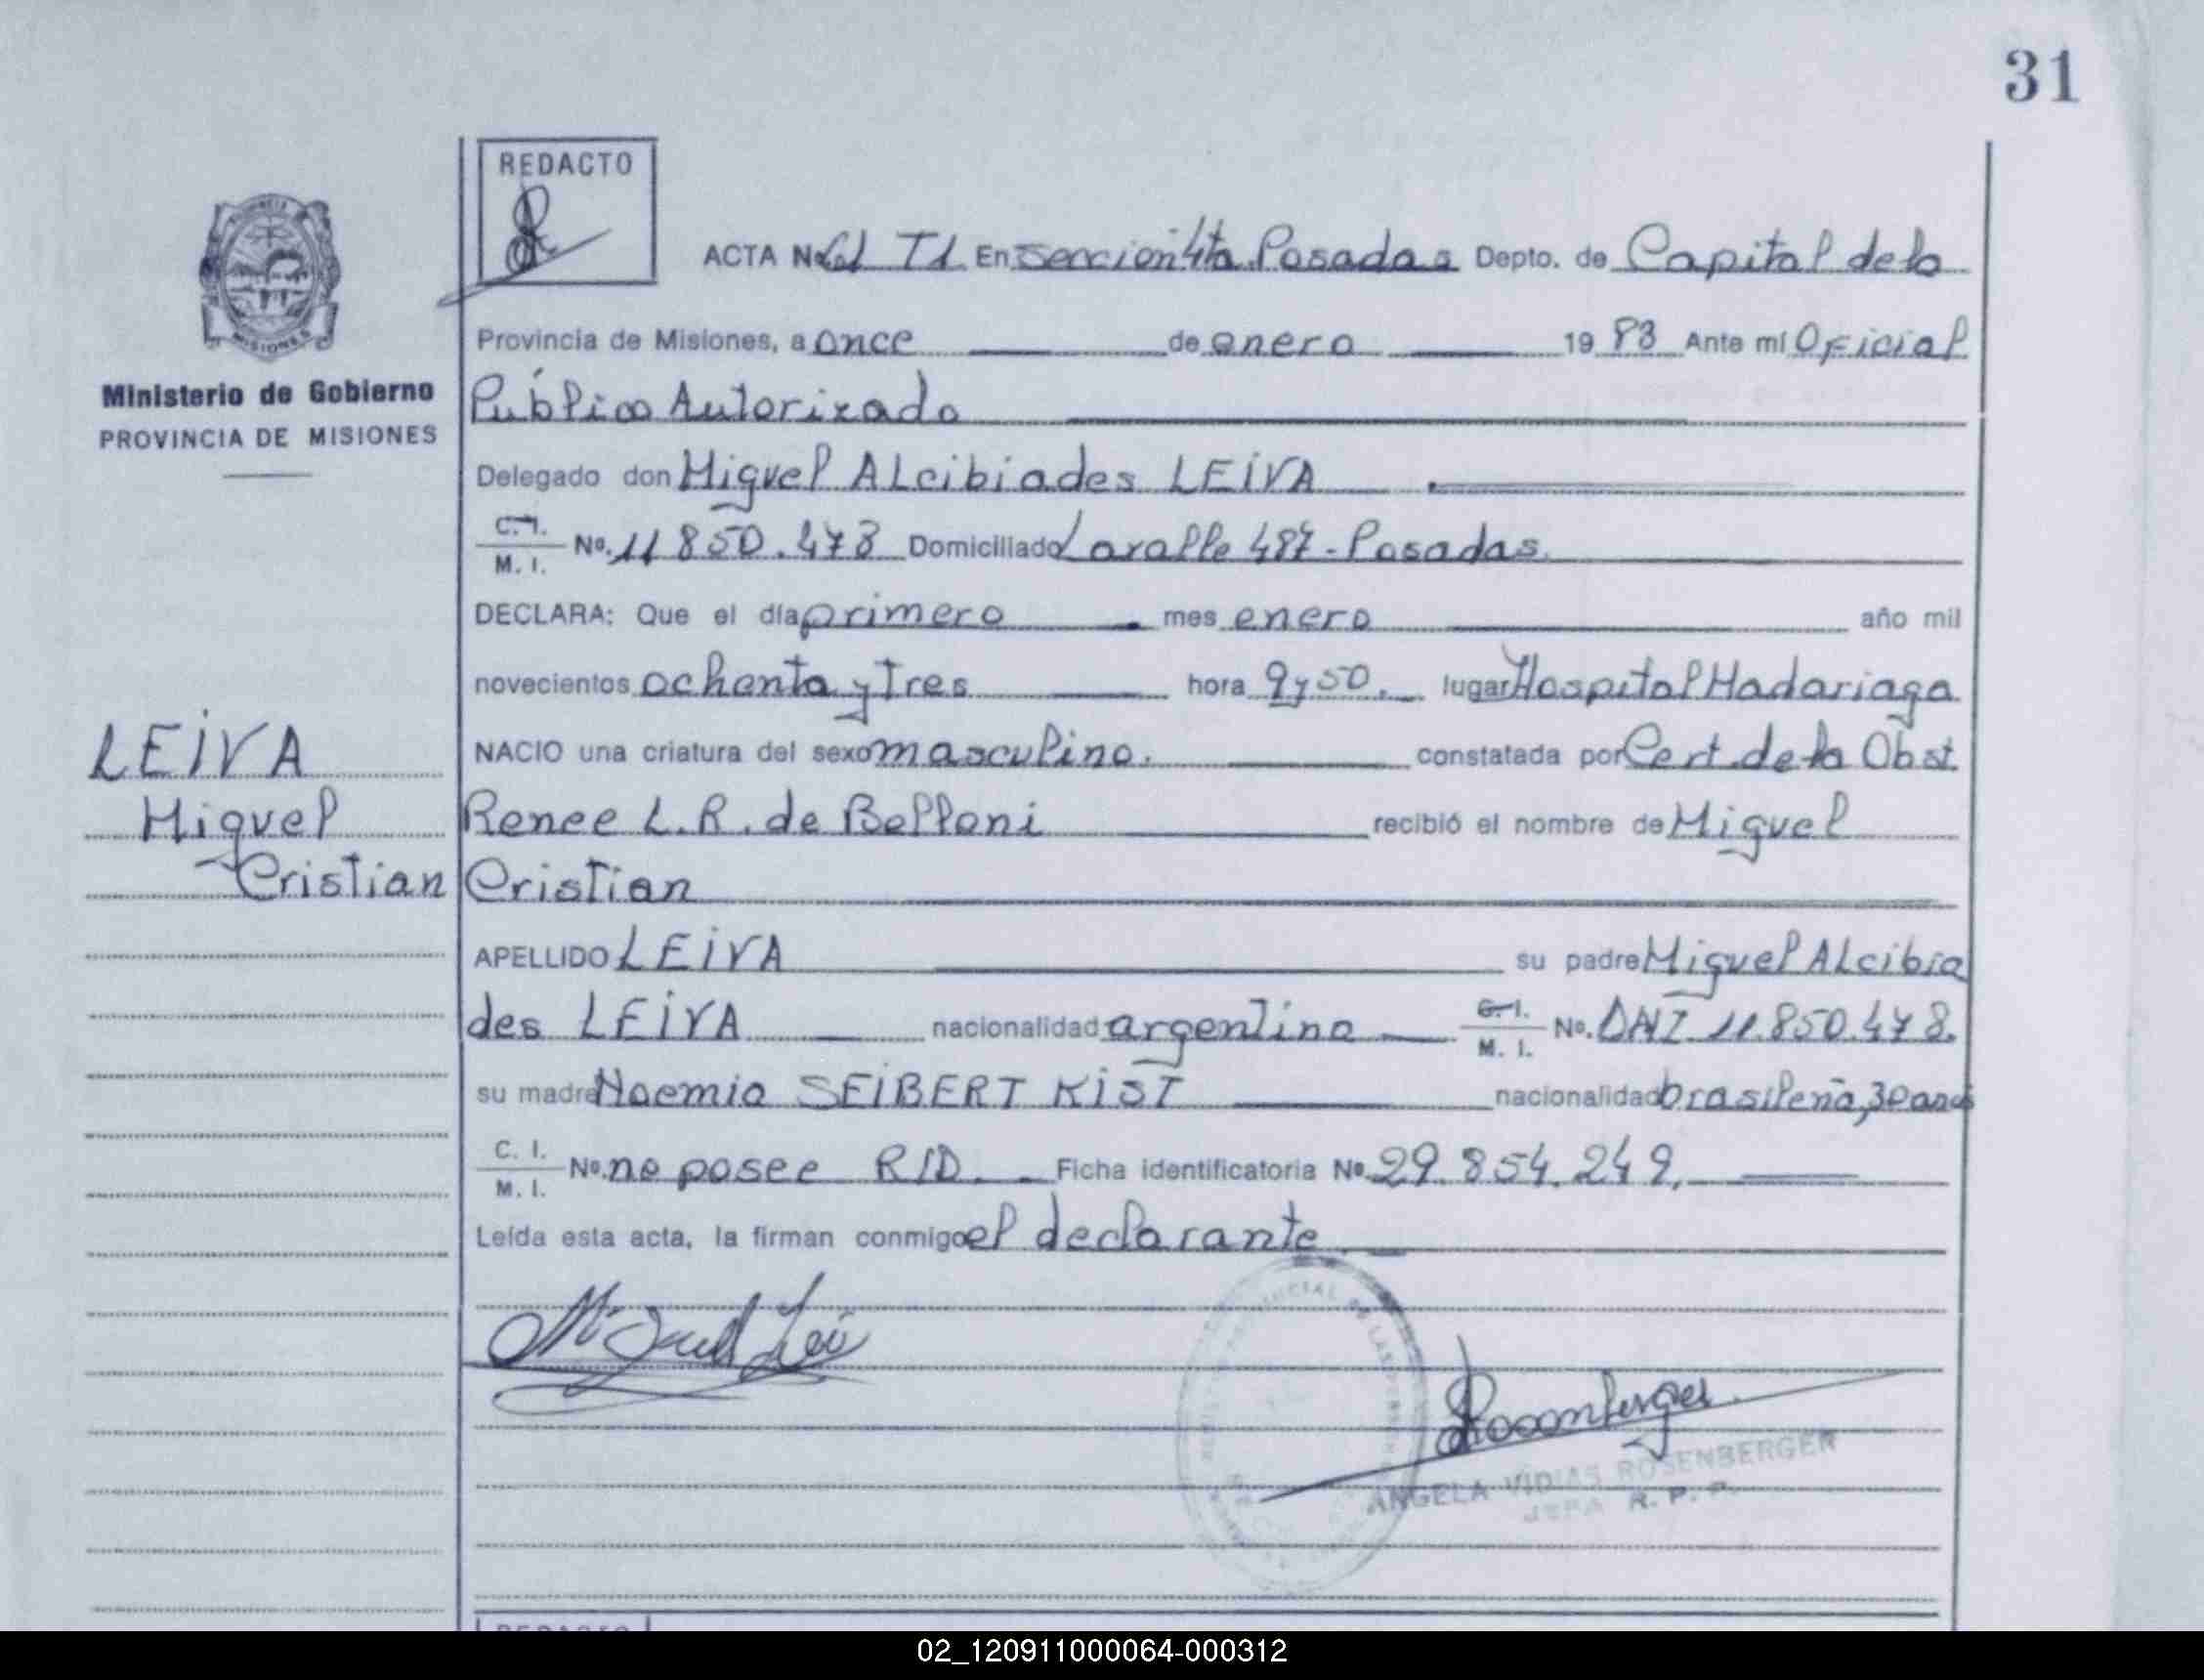 31
REDACTO
ACTA No 61 T1 En Seccion 4ta Posadas Depto. de Capital de la
Provincia de Misiones, a once de enero 1983 Ante mí Oficial
Ministerio de Gobierno
PROVINCIA DE MISIONES
MISIONES
Público Autorizado
Delegado don Miguel ALcibiades LEIVA
C. I.
M. I. No. 11850.478 Domiciliado Lavalle 487 - Posadas.
DECLARA: Que el día primero mes enero año mil
novecientos ochenta y Tres hora 9 y 50. lugar Hospital Madariaga
NACIO una criatura del sexo masculino. constatada por Cert. de la Obst.
Renee L. R. de Belloni recibió el nombre de Miguel
Cristian
LEIVA
Miguel
Cristian
APELLIDO LEIVA su padre Miguel ALcibia
des LEIVA nacionalidad argentino C. I. M. I. No. DNI 11.850.478.
su madre Noemia SEIBERT KIST nacionalidad brasileña, 30 anos
C. I.
M. I. No. no posee RID. Ficha identificatoria No 29.854.249.
Leída esta acta, la firman conmigo el declarante
Rosenberger
ANGELA VIDIAS ROSENBERGER
JEFA R. P. P.
REDACTO
02_120911000064-000312